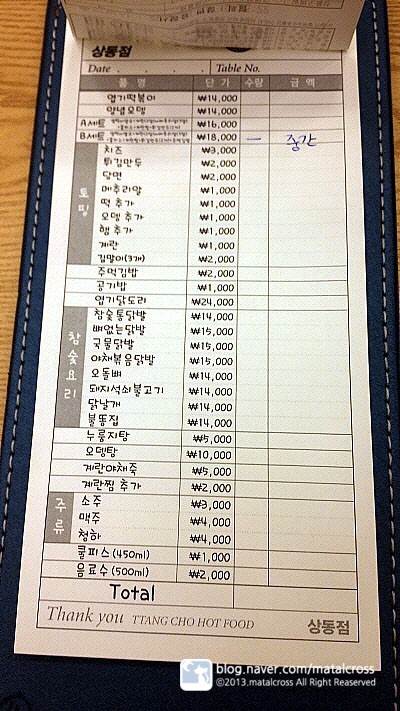 상동점
Date . . . Table No.
품 명 단 가 수량 금 액
엽기떡볶이 ₩14,000
양념오뎅 ₩14,000
A세트 ₩16,000
B세트 ₩18,000 — 중간
토핑
치즈 ₩3,000
튀김만두 ₩2,000
당면 ₩2,000
메추리알 ₩1,000
떡 추가 ₩1,000
오뎅 추가 ₩1,000
햄 추가 ₩1,000
계란 ₩1,000
김말이(3개) ₩2,000
주먹김밥 ₩2,000
공기밥 ₩1,000
엽기닭도리 ₩24,000
참숯요리
참숯통닭발 ₩14,000
뼈없는닭발 ₩15,000
국물닭발 ₩15,000
야채볶음닭발 ₩15,000
오돌뼈 ₩14,000
돼지석쇠불고기 ₩14,000
닭날개 ₩14,000
불똥집 ₩14,000
누룽지탕 ₩5,000
오뎅탕 ₩10,000
계란야채죽 ₩5,000
계란찜 추가 ₩2,000
주류
소주 ₩3,000
맥주 ₩4,000
청하 ₩4,000
쿨피스 (450ml) ₩1,000
음료수 (500ml) ₩2,000
Total
Thank you TTANG CHO HOT FOOD 상동점
blog.naver.com/matalcross
©2013.matalcross All Right Reaserved